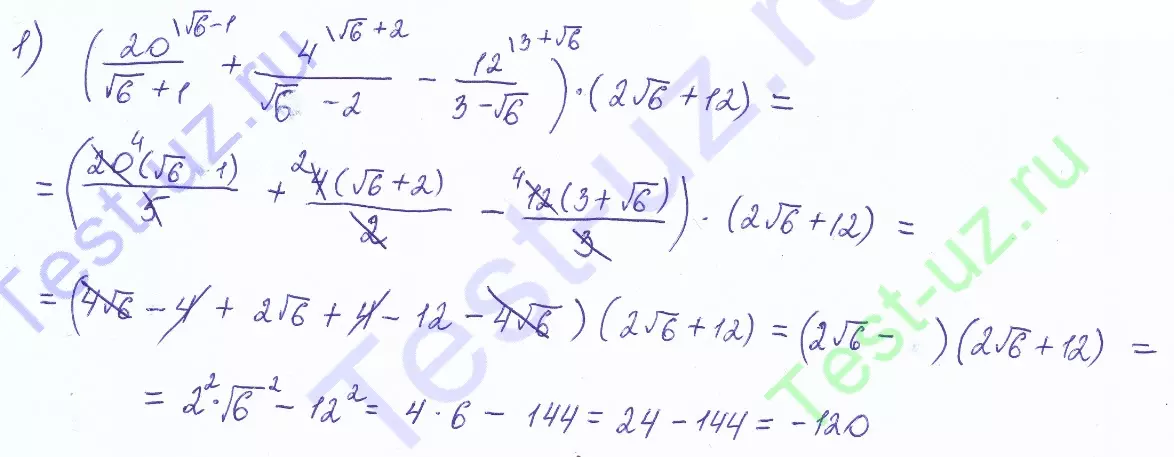 1) (20^{\√6-1}/(√6+1) + 4^{\√6+2}/(√6-2) - 12^{\3+√6}/(3-√6)) · (2√6+12) =
= (20^4(√6 1)/5 + ^2 4(√6+2)/2 - ^4 12(3+√6)/3) · (2√6+12) =
= (4√6 - 4 + 2√6 + 4 - 12 - 4√6)(2√6+12) = (2√6 - )(2√6+12) =
= 2^2·√6^2 - 12^2 = 4·6 - 144 = 24 - 144 = -120
Test-uz.ru
Test-uz.ru
Test-uz.ru